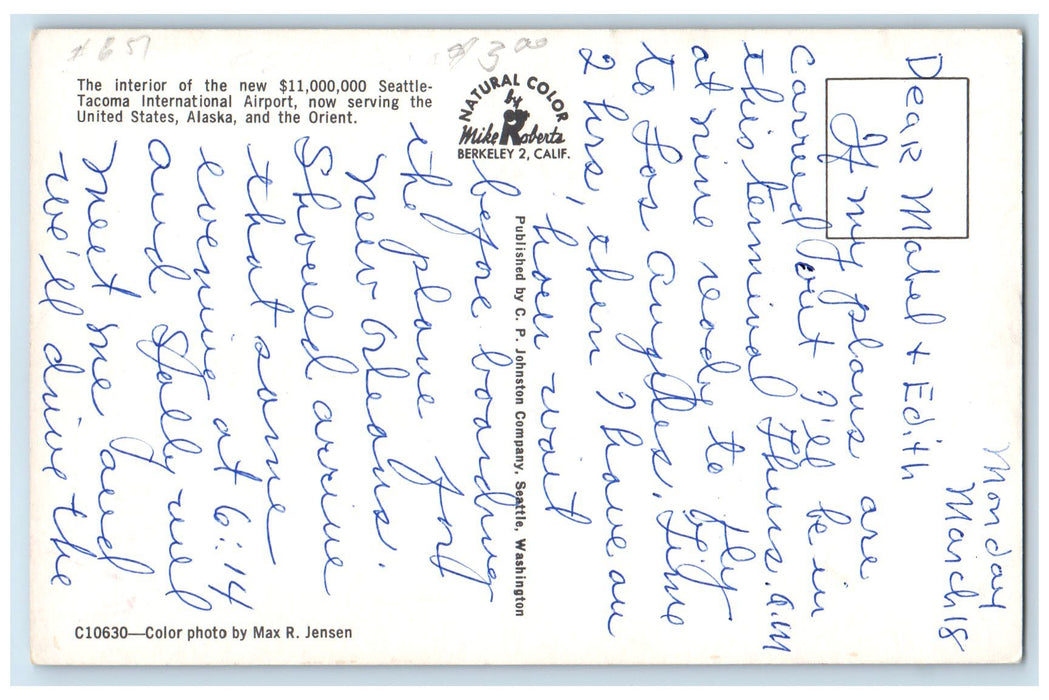 # 651
$3.00
The interior of the new $11,000,000 Seattle-
Tacoma International Airport, now serving the
United States, Alaska, and the Orient.
NATURAL COLOR
by
Mike Roberts
BERKELEY 2, CALIF.
Published by C. P. Johnston Company, Seattle, Washington
C10630—Color photo by Max R. Jensen
Monday
March 18
Dear Mabel + Edith
If my plans are
Carried out I'll be in
this terminal Thurs. a.m
at nine ready to fly
to Los Angeles. Time
2 hrs, then I have an
hour wait
before boarding
the plane for
New Orleans.
Should arrive
that same
evening at 6:14
and will
meet me and
we'll drive the